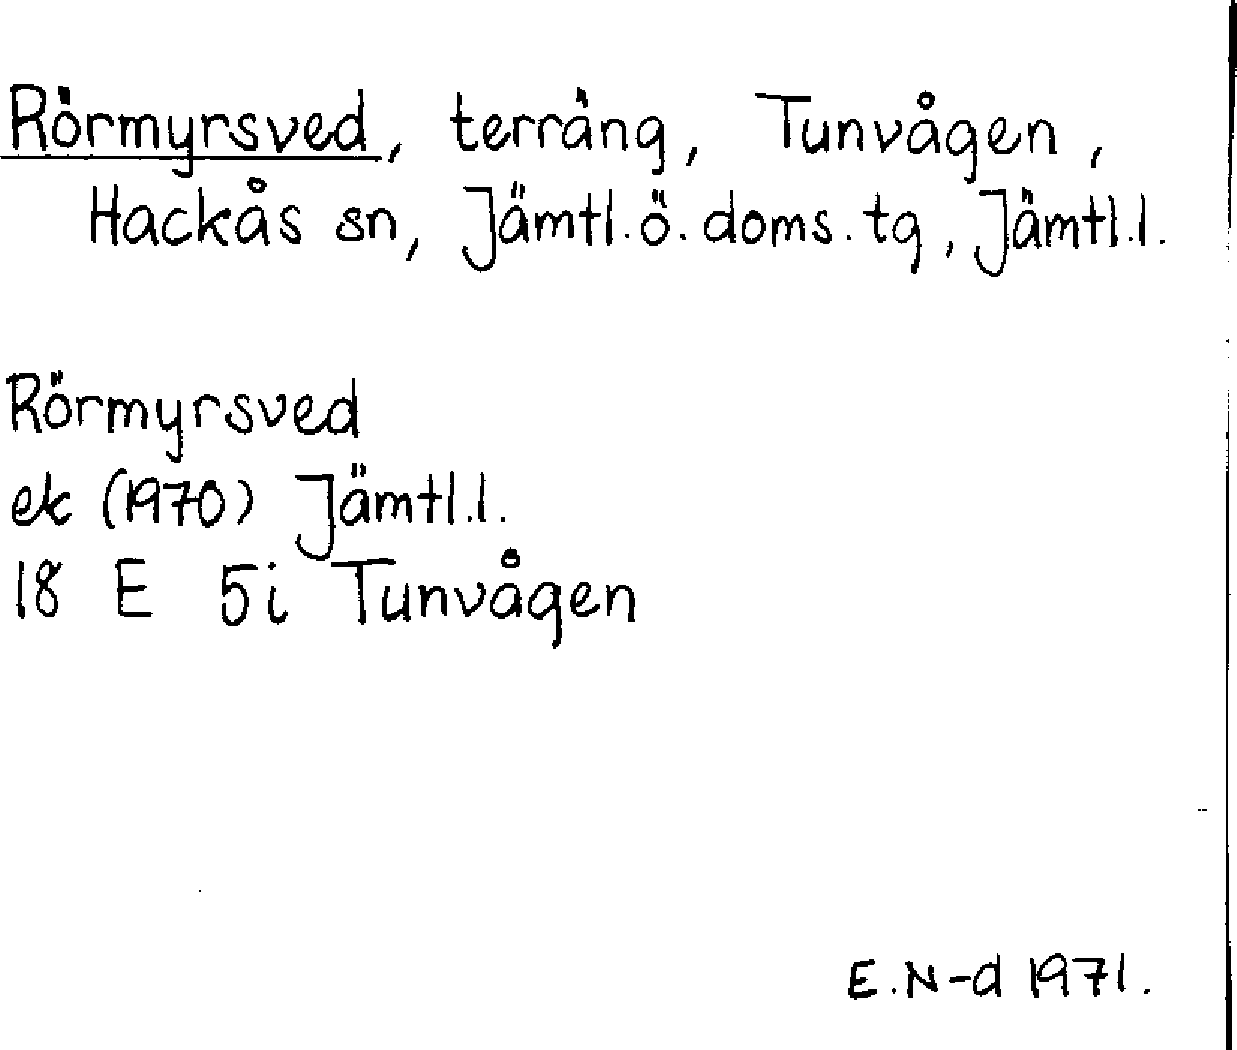 Rörmyrsved, terräng, Tunvågen,
Hackås sn, Jämtl.ö.doms.tg, Jämtl.l.
Rörmyrsved
ek (1970) Jämtl.l.
18 E 5i Tunvågen
E.N-d 1971.